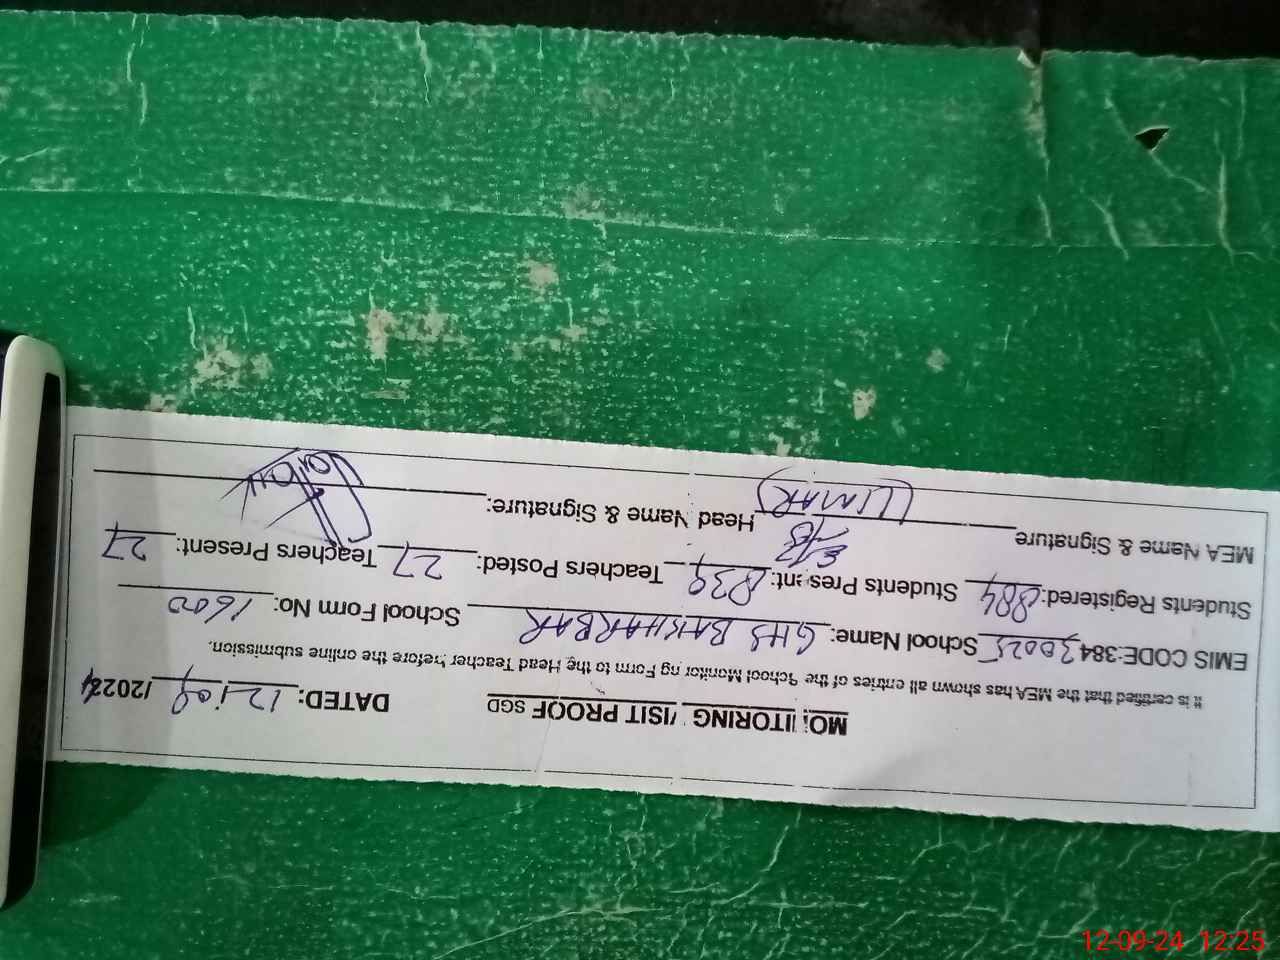 MONITORING VISIT PROOF SGD DATED: 12/09/2024
It is certified that the MEA has shown all entries of the School Monitoring Form to the Head Teacher before the online submission.
EMIS CODE:384 30025 School Name: GHS BAKHARBAR School Form No: 1600
Students Registered: 884 Students Present: 839 Teachers Posted: 27 Teachers Present: 27
MEA Name & Signature (UMAR) Head Name & Signature:
12-09-24 12:25